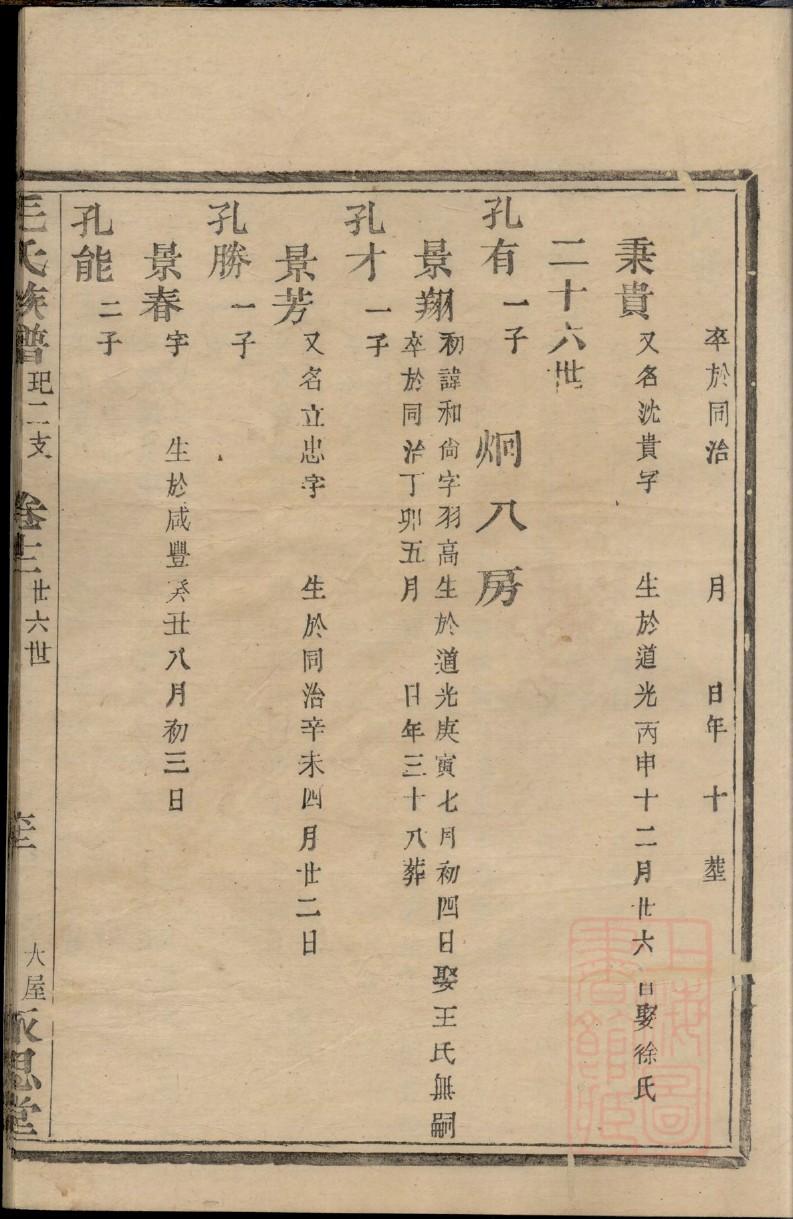 卒於同治　月　日年　十　塟
秉貴　又名沈貴字　生於道光丙申十二月廿六日娶徐氏
二十六世　炯八房
孔有　一子
景翔　初諱和尙字羽高生於道光庚寅七月初四日娶王氏無嗣
卒於同治丁卯五月　日年三十八葬
孔才　一子
景芳　又名立忠字　生於同治辛未四月廿二日
孔勝　一子
景春　字　生於咸豐癸丑八月初三日
孔能　二子
王氏族譜　玘二支　卷十三　廿六世　大屋　永思堂
上海圖書館藏